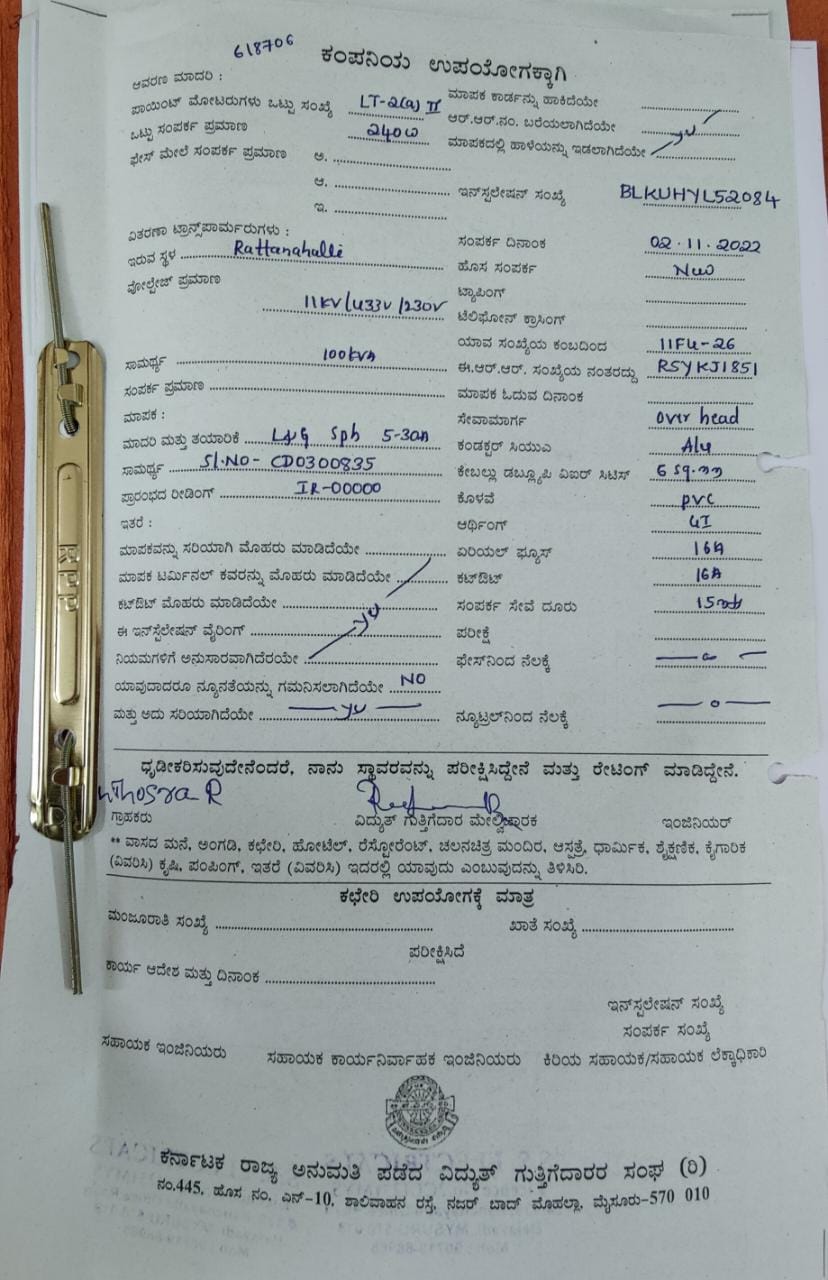 618706
ಕಂಪನಿಯ ಉಪಯೋಗಕ್ಕಾಗಿ
ಆವರಣ ಮಾದರಿ :
ಪಾಯಿಂಟ್ ಮೋಟರುಗಳು ಒಟ್ಟು ಸಂಖ್ಯೆ LT-2(a) II ಮಾಪಕ ಕಾರ್ಡನ್ನು ಹಾಕಿದೆಯೇ
ಒಟ್ಟು ಸಂಪರ್ಕ ಪ್ರಮಾಣ 240W ಆರ್.ಆರ್.ನಂ. ಬರೆಯಲಾಗಿದೆಯೇ
ಫೇಸ್ ಮೇಲೆ ಸಂಪರ್ಕ ಪ್ರಮಾಣ ಅ. ಮಾಪಕದಲ್ಲಿ ಹಾಳೆಯನ್ನು ಇಡಲಾಗಿದೆಯೇ
ಆ. ಇನ್‌ಸ್ಟಲೇಷನ್ ಸಂಖ್ಯೆ BLKUHYL52084
ಇ.
ವಿತರಣಾ ಟ್ರಾನ್ಸ್‌ಪಾರ್ಮರುಗಳು : ಸಂಪರ್ಕ ದಿನಾಂಕ 02.11.2022
ಇರುವ ಸ್ಥಳ Rattanahalli ಹೊಸ ಸಂಪರ್ಕ New
ವೋಲ್ಟೇಜ್ ಪ್ರಮಾಣ 11KV/433V/230V ಟ್ಯಾಪಿಂಗ್
ಟೆಲಿಫೋನ್ ಕ್ರಾಸಿಂಗ್
ಯಾವ ಸಂಖ್ಯೆಯ ಕಂಬದಿಂದ 11F4-26
ಸಾಮರ್ಥ್ಯ 100KVA ಈ.ಆರ್.ಆರ್. ಸಂಖ್ಯೆಯ ನಂತರದ್ದು RSYKJ1851
ಸಂಪರ್ಕ ಪ್ರಮಾಣ ಮಾಪಕ ಓದುವ ದಿನಾಂಕ
ಮಾಪಕ : ಸೇವಾಮಾರ್ಗ over head
ಮಾದರಿ ಮತ್ತು ತಯಾರಿಕೆ L&G Sph 5-30A ಕಂಡಕ್ಟರ್ ಸಿಯುಎ Alu
ಸಾಮರ್ಥ್ಯ Sl.NO- CD0300835 ಕೇಬಲ್ಲು ಡಬ್ಲ್ಯೂಪಿ ವಿಐರ್ ಸಿಟಿಸ್ 6 sq.mm
ಪ್ರಾರಂಭದ ರೀಡಿಂಗ್ IR-00000 ಕೊಳವೆ pvc
ಇತರೆ : ಆರ್ಥಿಂಗ್ GI
ಮಾಪಕವನ್ನು ಸರಿಯಾಗಿ ಮೊಹರು ಮಾಡಿದೆಯೇ ಏರಿಯಲ್ ಫ್ಯೂಸ್ 16A
ಮಾಪಕ ಟರ್ಮಿನಲ್ ಕವರನ್ನು ಮೊಹರು ಮಾಡಿದೆಯೇ ಕಟ್‌ಔಟ್ 16A
ಕಟ್‌ಔಟ್ ಮೊಹರು ಮಾಡಿದೆಯೇ ಸಂಪರ್ಕ ಸೇವೆ ದೂರು
ಈ ಇನ್‌ಸ್ಟೆಲೇಷನ್ ವೈರಿಂಗ್ ಪರೀಕ್ಷೆ
ನಿಯಮಗಳಿಗೆ ಅನುಸಾರವಾಗಿದೆರಯೇ ಫೇಸ್‌ನಿಂದ ನೆಲಕ್ಕೆ
ಯಾವುದಾದರೂ ನ್ಯೂನತೆಯನ್ನು ಗಮನಿಸಲಾಗಿದೆಯೇ NO
ಮತ್ತು ಅದು ಸರಿಯಾಗಿದೆಯೇ ನ್ಯೂಟ್ರಲ್‌ನಿಂದ ನೆಲಕ್ಕೆ
ಧೃಡೀಕರಿಸುವುದೇನೆಂದರೆ, ನಾನು ಸ್ಥಾವರವನ್ನು ಪರೀಕ್ಷಿಸಿದ್ದೇನೆ ಮತ್ತು ರೇಟಿಂಗ್ ಮಾಡಿದ್ದೇನೆ.
ಗ್ರಾಹಕರು ವಿದ್ಯುತ್ ಗುತ್ತಿಗೆದಾರ ಮೇಲ್ವಿಚಾರಕ ಇಂಜಿನಿಯರ್
** ವಾಸದ ಮನೆ, ಅಂಗಡಿ, ಕಛೇರಿ, ಹೋಟೆಲ್, ರೆಸ್ಟೋರೆಂಟ್, ಚಲನಚಿತ್ರ ಮಂದಿರ, ಆಸ್ಪತ್ರೆ, ಧಾರ್ಮಿಕ, ಶೈಕ್ಷಣಿಕ, ಕೈಗಾರಿಕ
(ವಿವರಿಸಿ) ಕೃಷಿ, ಪಂಪಿಂಗ್, ಇತರೆ (ವಿವರಿಸಿ) ಇದರಲ್ಲಿ ಯಾವುದು ಎಂಬುವುದನ್ನು ತಿಳಿಸಿರಿ.
ಕಛೇರಿ ಉಪಯೋಗಕ್ಕೆ ಮಾತ್ರ
ಮಂಜೂರಾತಿ ಸಂಖ್ಯೆ ಖಾತೆ ಸಂಖ್ಯೆ
ಪರೀಕ್ಷಿಸಿದೆ
ಕಾರ್ಯ ಆದೇಶ ಮತ್ತು ದಿನಾಂಕ
ಇನ್‌ಸ್ಟಲೇಷನ್ ಸಂಖ್ಯೆ
ಸಂಪರ್ಕ ಸಂಖ್ಯೆ
ಸಹಾಯಕ ಇಂಜಿನಿಯರು ಸಹಾಯಕ ಕಾರ್ಯನಿರ್ವಾಹಕ ಇಂಜಿನಿಯರು ಕಿರಿಯ ಸಹಾಯಕ/ಸಹಾಯಕ ಲೆಕ್ಕಾಧಿಕಾರಿ
ಕರ್ನಾಟಕ ರಾಜ್ಯ ಅನುಮತಿ ಪಡೆದ ವಿದ್ಯುತ್ ಗುತ್ತಿಗೆದಾರರ ಸಂಘ (ರಿ)
ನಂ.445, ಹೊಸ ನಂ. ಎನ್-10, ಶಾಲಿವಾಹನ ರಸ್ತೆ, ನಜರ್ ಬಾದ್ ಮೊಹಲ್ಲಾ, ಮೈಸೂರು-570 010